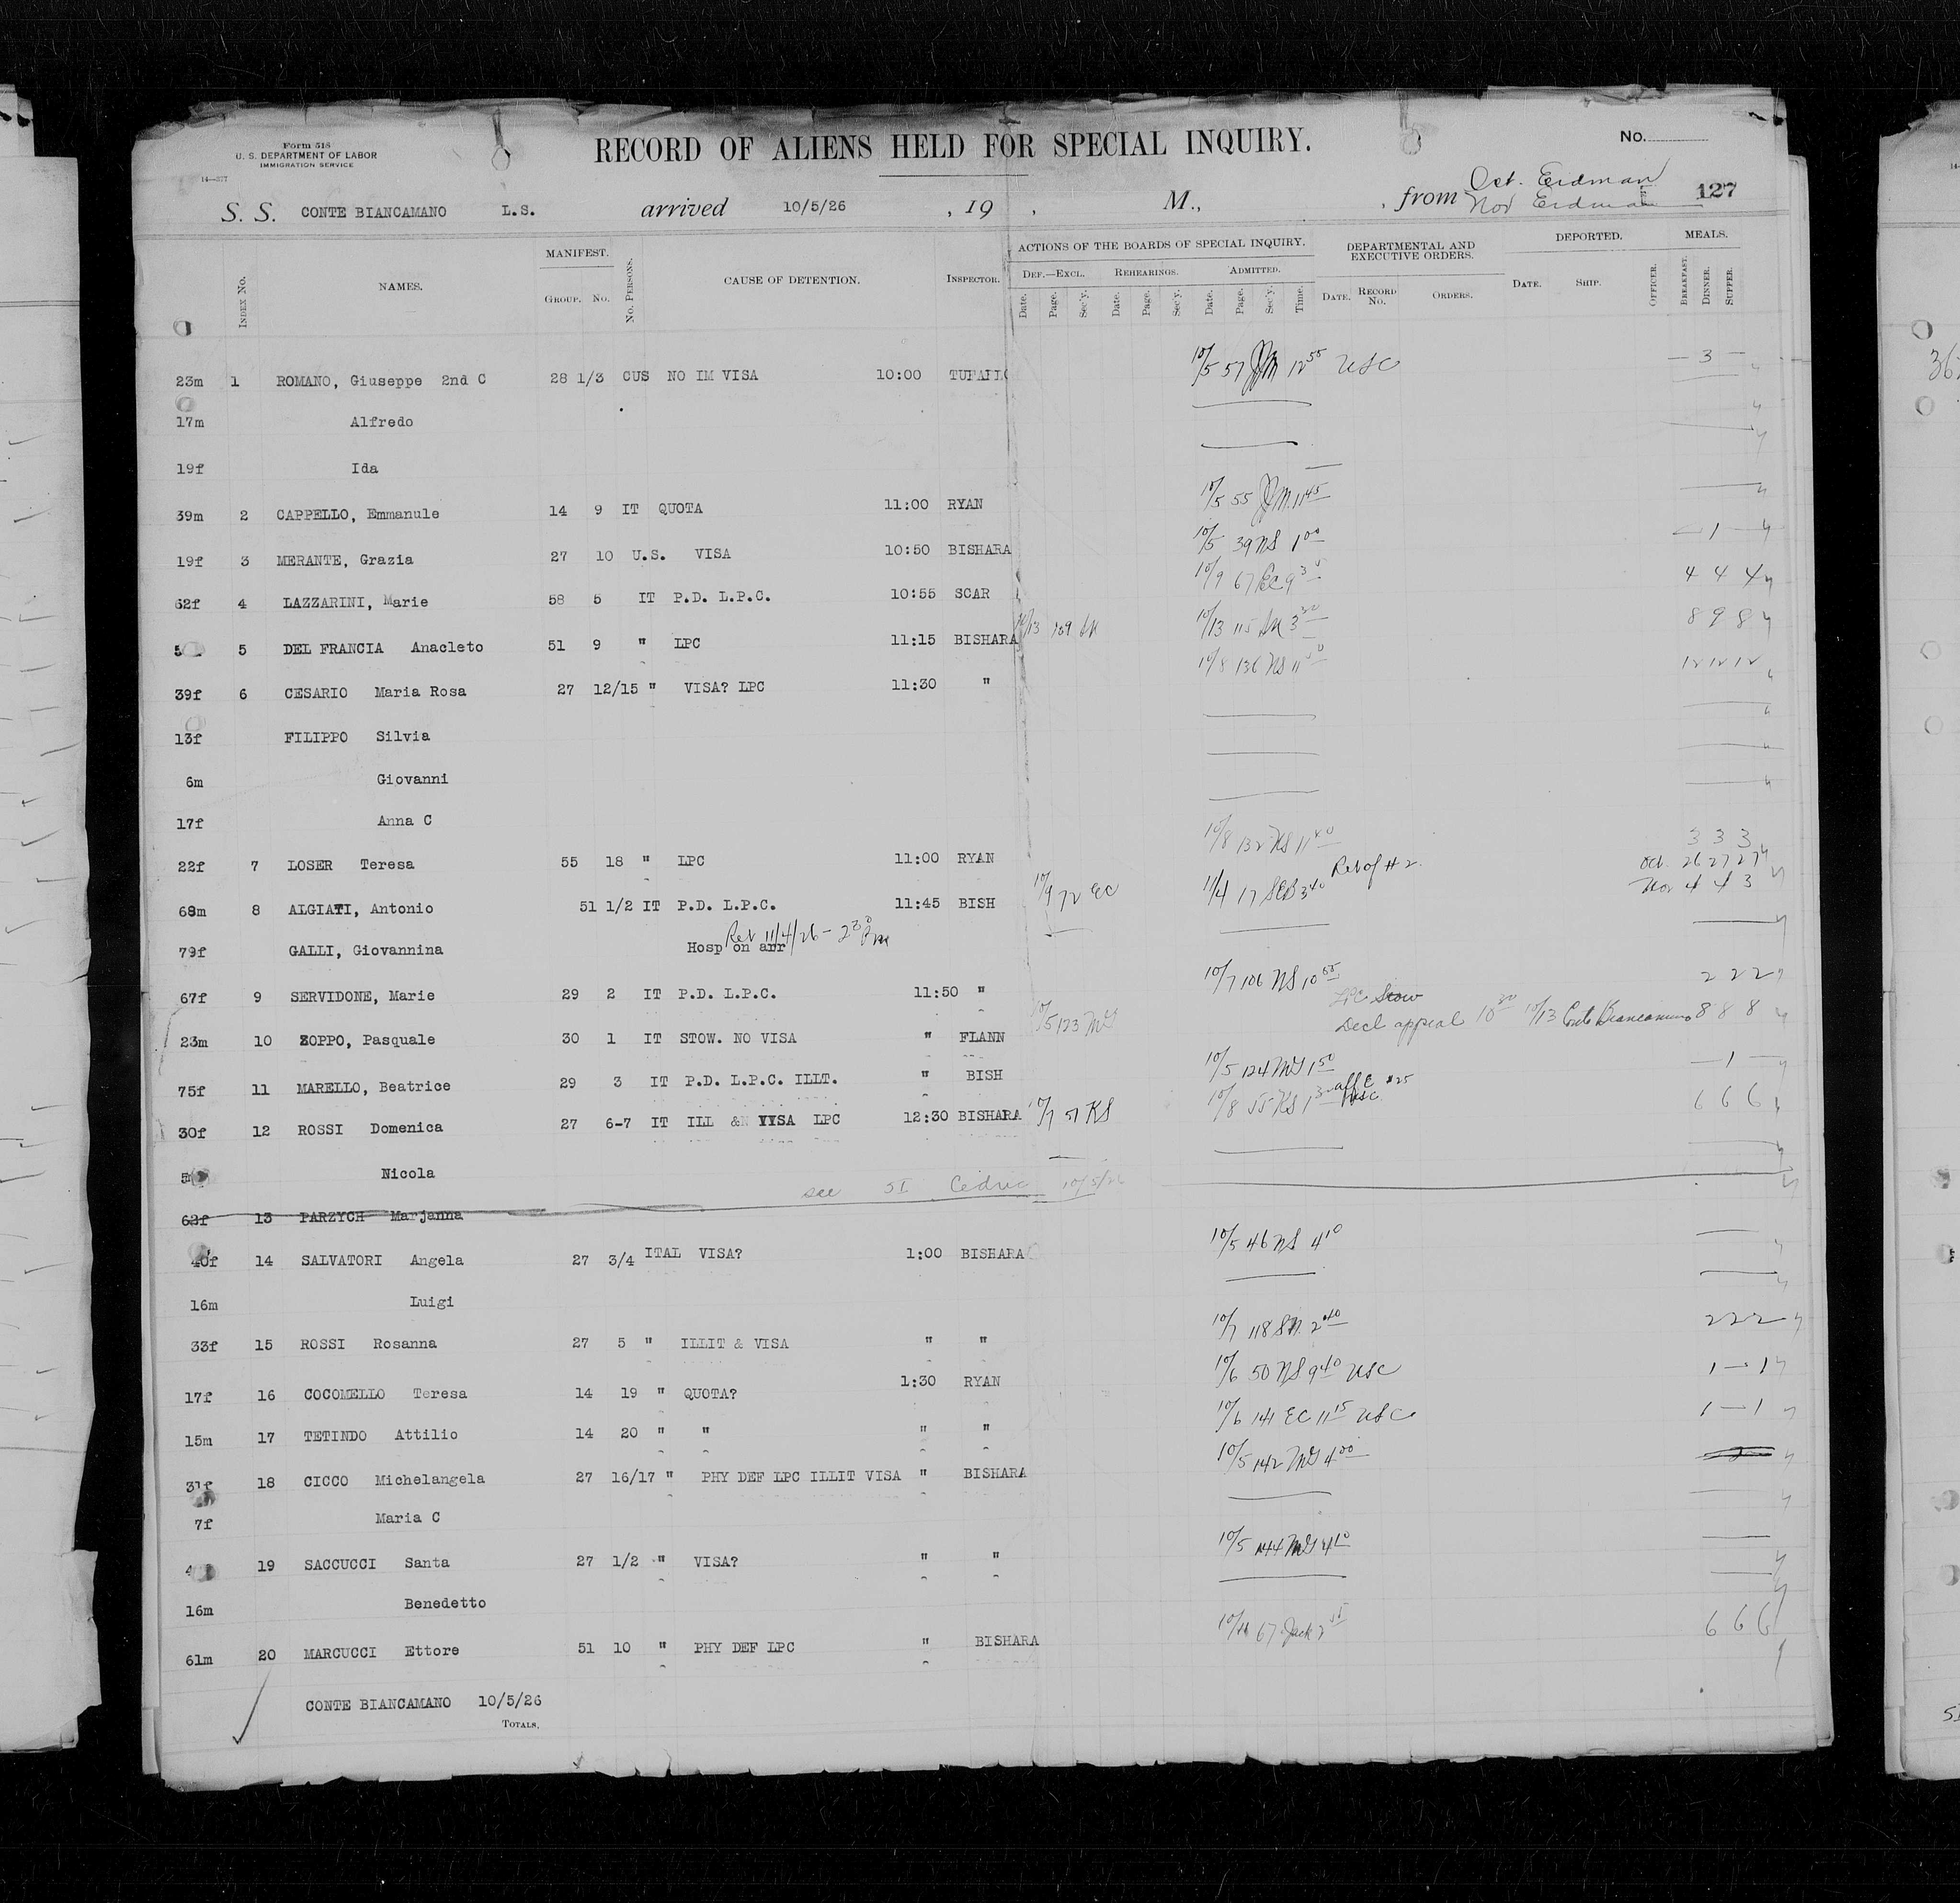 Form 518
U. S. DEPARTMENT OF LABOR
IMMIGRATION SERVICE
14—377
RECORD OF ALIENS HELD FOR SPECIAL INQUIRY.
No.
S. S. CONTE BIANCAMANO L.S. arrived 10/5/26 , 19 , M., , from Oct. Erdman
Nov Erdman 127
INDEX No. NAMES. MANIFEST. GROUP. No. No. PERSONS. CAUSE OF DETENTION. INSPECTOR.
ACTIONS OF THE BOARDS OF SPECIAL INQUIRY. DEPARTMENTAL AND EXECUTIVE ORDERS. DEPORTED. MEALS.
DEF.—EXCL. REHEARINGS. ADMITTED.
Date. Page. Sec'y. Date. Page. Sec'y. Date. Page. Sec'y. Time. DATE. RECORD No. ORDERS. DATE. SHIP. OFFICER. BREAKFAST. DINNER. SUPPER.
23m 1 ROMANO, Giuseppe 2nd C 28 1/3 CUS NO IM VISA 10:00 10/5 57 12 55 USC — 3 —
17m Alfredo
19f Ida
39m 2 CAPPELLO, Emmanule 14 9 IT QUOTA 11:00 RYAN 10/5 55 11 45
19f 3 MERANTE, Grazia 27 10 U.S. VISA 10:50 BISHARA 10/5 39 NS 1 00 — 1 —
62f 4 LAZZARINI, Marie 58 5 IT P.D. L.P.C. 10:55 SCAR 10/9 67 EC 9 4 4 4
5 DEL FRANCIA Anacleto 51 9 " LPC 11:15 BISHARA 10/13 10/13 115 3 30 8 9 8
39f 6 CESARIO Maria Rosa 27 12/15 " VISA? LPC 11:30 " 10/8 136 NS 11 12 12 12
13f FILIPPO Silvia
6m Giovanni
17f Anna C
22f 7 LOSER Teresa 55 18 " LPC 11:00 RYAN 10/8 132 NS 11 40 3 3 3
68m 8 ALGIATI, Antonio 51 1/2 IT P.D. L.P.C. 11:45 BISH 10/9 72 EC 11/4 17 SEB 3 40 Ret of # 2. Oct. 26 27 27
Nov 4 4 3
79f GALLI, Giovannina Hosp on arr Ret 11/4/26 - 2 30 Pm
67f 9 SERVIDONE, Marie 29 2 IT P.D. L.P.C. 11:50 " 10/7 106 NS 10 55 2 2 2
LPC Stow
23m 10 ZOPPO, Pasquale 30 1 IT STOW. NO VISA " FLANN 10/5 123 MG Decl appeal 10 30 10/13 Conte Biancamano 8 8 8
75f 11 MARELLO, Beatrice 29 3 IT P.D. L.P.C. ILLT. " BISH 10/5 124 MG 1 50 — 1 —
30f 12 ROSSI Domenica 27 6-7 IT ILL & VISA LPC 12:30 BISHARA 10/7 51 KS 10/8 55 KS 1 6 6 6
Nicola
see SI Cedric 10/5/26
62f 13 PARZYCH Marjanna
40f 14 SALVATORI Angela 27 3/4 ITAL VISA? 1:00 BISHARA 10/5 46 NS 4 10
16m Luigi
33f 15 ROSSI Rosanna 27 5 " ILLIT & VISA " " 10/7 118 2 40 2 2 2
17f 16 COCOMELLO Teresa 14 19 " QUOTA? 1:30 RYAN 10/6 50 NS 9 40 USC 1 — 1
15m 17 TETINDO Attilio 14 20 " " " " 10/6 141 EC 11 15 USC 1 — 1
31f 18 CICCO Michelangela 27 16/17 " PHY DEF LPC ILLIT VISA " BISHARA 10/5 142 MG 4 00
7f Maria C
19 SACCUCCI Santa 27 1/2 " VISA? " " 10/5 144 MG 4 10
16m Benedetto
61m 20 MARCUCCI Ettore 51 10 " PHY DEF LPC " BISHARA 67 6 6 6
CONTE BIANCAMANO 10/5/26
TOTALS.